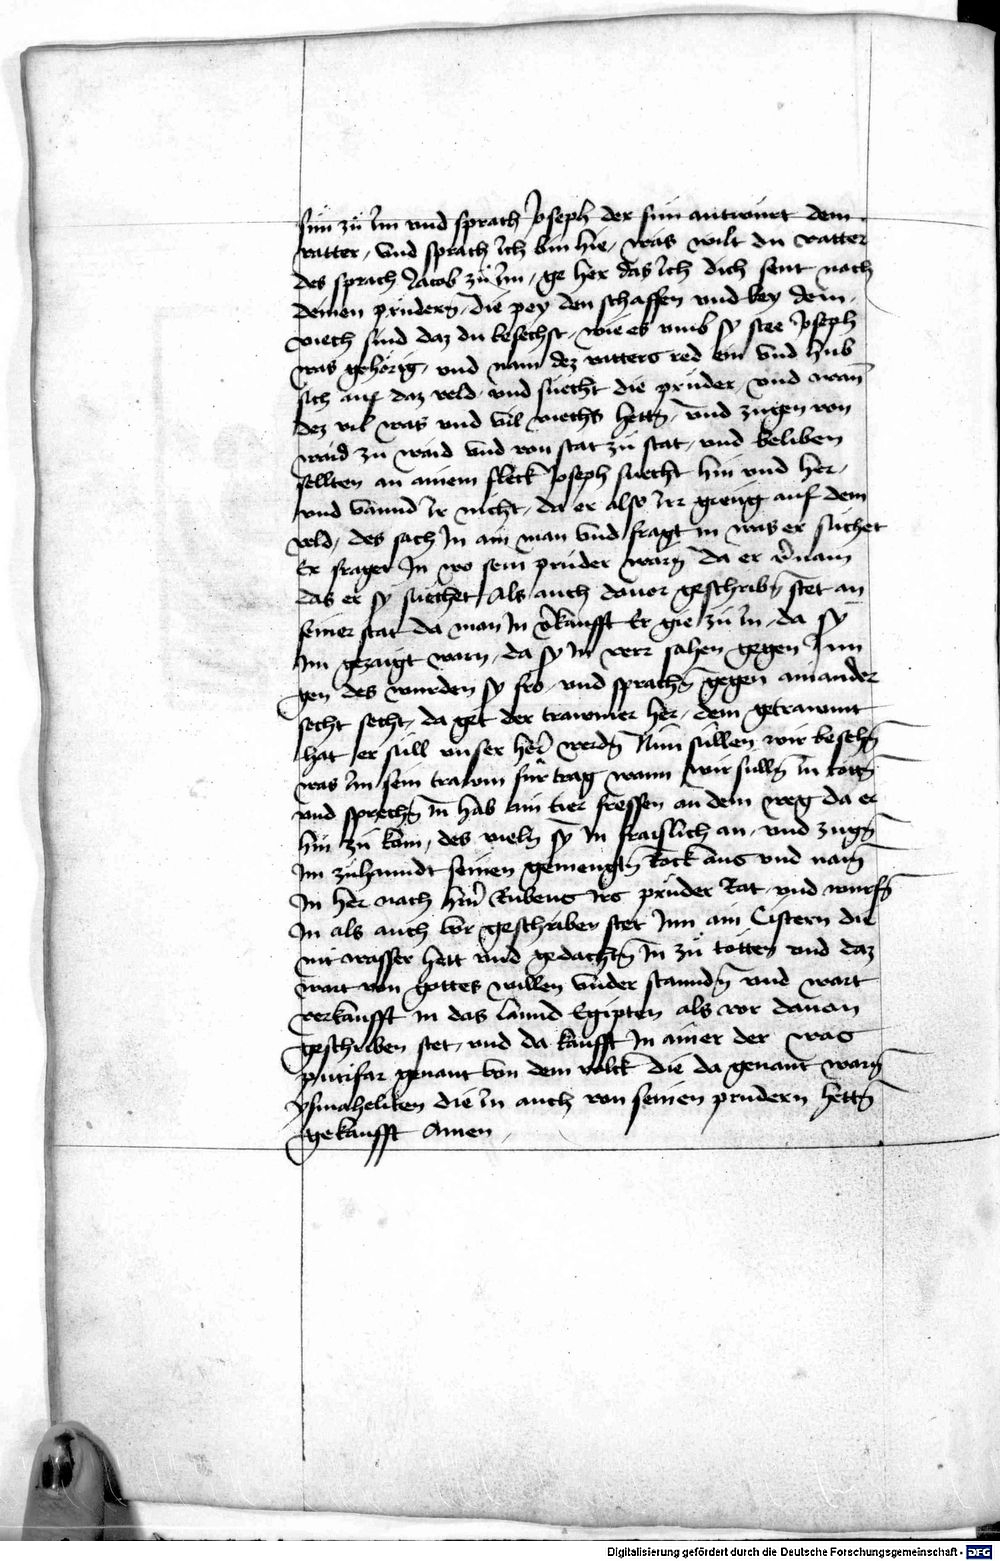 sün zü Im vnd sprach Joseph der sun antwurt dem
vatter, vnd sprach Ich bin hie, was wilt du vatter
des sprach Jacob zü Im, ge her das Ich dich sent nach
deinen prüdern, die pey den schaffen vnd bey dem
viech sind daz du besechst, wie es vmb sy stee Joseph
was gehörig, vnd nam dez vatters red ein vnd hub
sich auf daz veld, vnd suecht die prüder, vnd wan
dez vil was vnd vil viechs hettn, vnd zugen von
waid zu waid vnd von stat zü stat, vnd beliben
sellten an ainem fleck Joseph suecht hin vnd her,
vnd vannd Ir nicht, da er also Irr gieng auf dem
veld, des sach In ain man vnd fragt in was er suchet
Er fraget In wo sein prüder warn da er v̄nam
das er sy suechet, Als auch dauor geschribn̄ stet an
seiner stat da man In v̄kaufft Er gie zü In, da sy
Im gezaigt warn, da sy In verr sahen gegen Inn
gen des wurden sy fro, vnd sprachn̄ gegen ainander
secht secht, da get der trawmer her, dem getrawmt
hat er süll vnser her werdn̄ Nun süllen wir besehn̄
was Im sein trawm für trag wann wir sülln̄ In tottn̄
vnd sprechn̄ in hab ain tier fressen an dem weg da er
hin zü kam, des vieln sy In fraislich an, vnd zugn̄
Im zuhanndt seinen gemengtn̄ Rock aus vnd namn̄
In her nach hin Rubens Irs prüder Rat, vnd wurfn̄
In als auch vor geschriben stet Inn ain Cistern die
nit wasser hett vnd gedachtn̄ In zü tötten vnd daz
wart von gottes willen vnder stanndn̄ vnd wart
verkaufft in das lannd Egipten als vor dauon
geschriben stet, vnd da kaufft In ainer der was
putifar genant von dem volck die da genant warn̄
ysmaheliten die In auch von seinen prudern hettn̄
gekaufft Amen
Digitalisierung gefördert durch die Deutsche Forschungsgemeinschaft - DFG